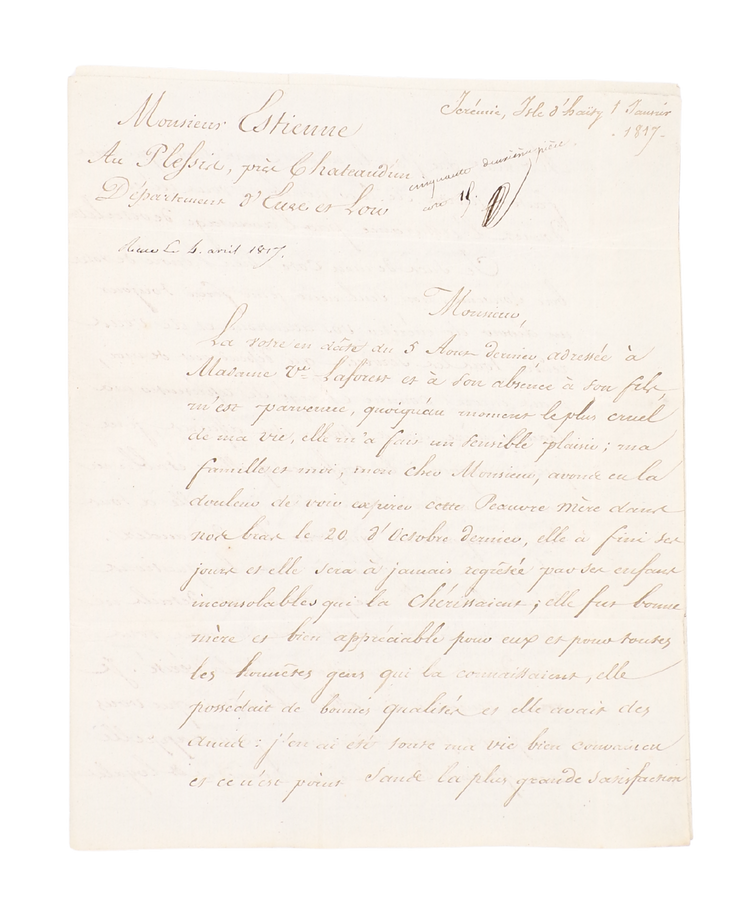 Jérémie, Isle d'haïty 1 Janvier
1817.
Monsieur Estienne
Au Plessis, près Chateaudun
Département d'Eure et Loir
cinquante deuxième pièce
Recue Le 4. avril 1817.
Monsieur,
La votre en date du 5 Aout dernier, adressée à
Madame Ve. Laforest et à son absence à son fils,
m'est parvenue, quoiqu'au moment le plus cruel
de ma vie, elle m'a fait un sensible plaisir; ma
famille et moi, mon cher Monsieur, avons eu la
douleur de voir expirer cette Pauvre mère dans
nos bras le 20 d'Octobre dernier, elle a fini ses
jours et elle sera à jamais regretée par ses enfans
inconsolables qui la chérissaient; elle fut bonne
mère et bien appréciable pour eux et pour toutes
les honnêtes gens qui la connaissaient, elle
possédait de bonnes qualités et elle avait des
amis: j'en ai été toute ma vie bien convaincu
et ce n'est point sans la plus grande satisfaction